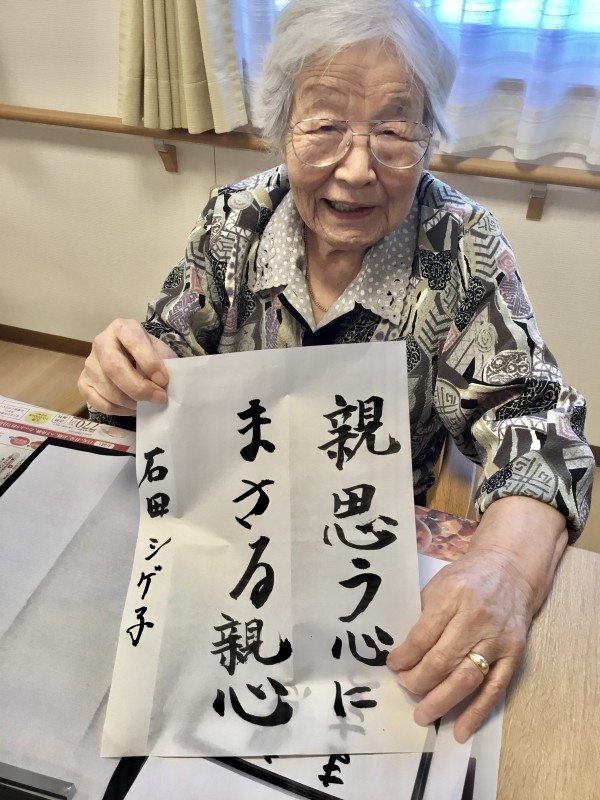 親思う心に
まさる親心
石田シゲ子